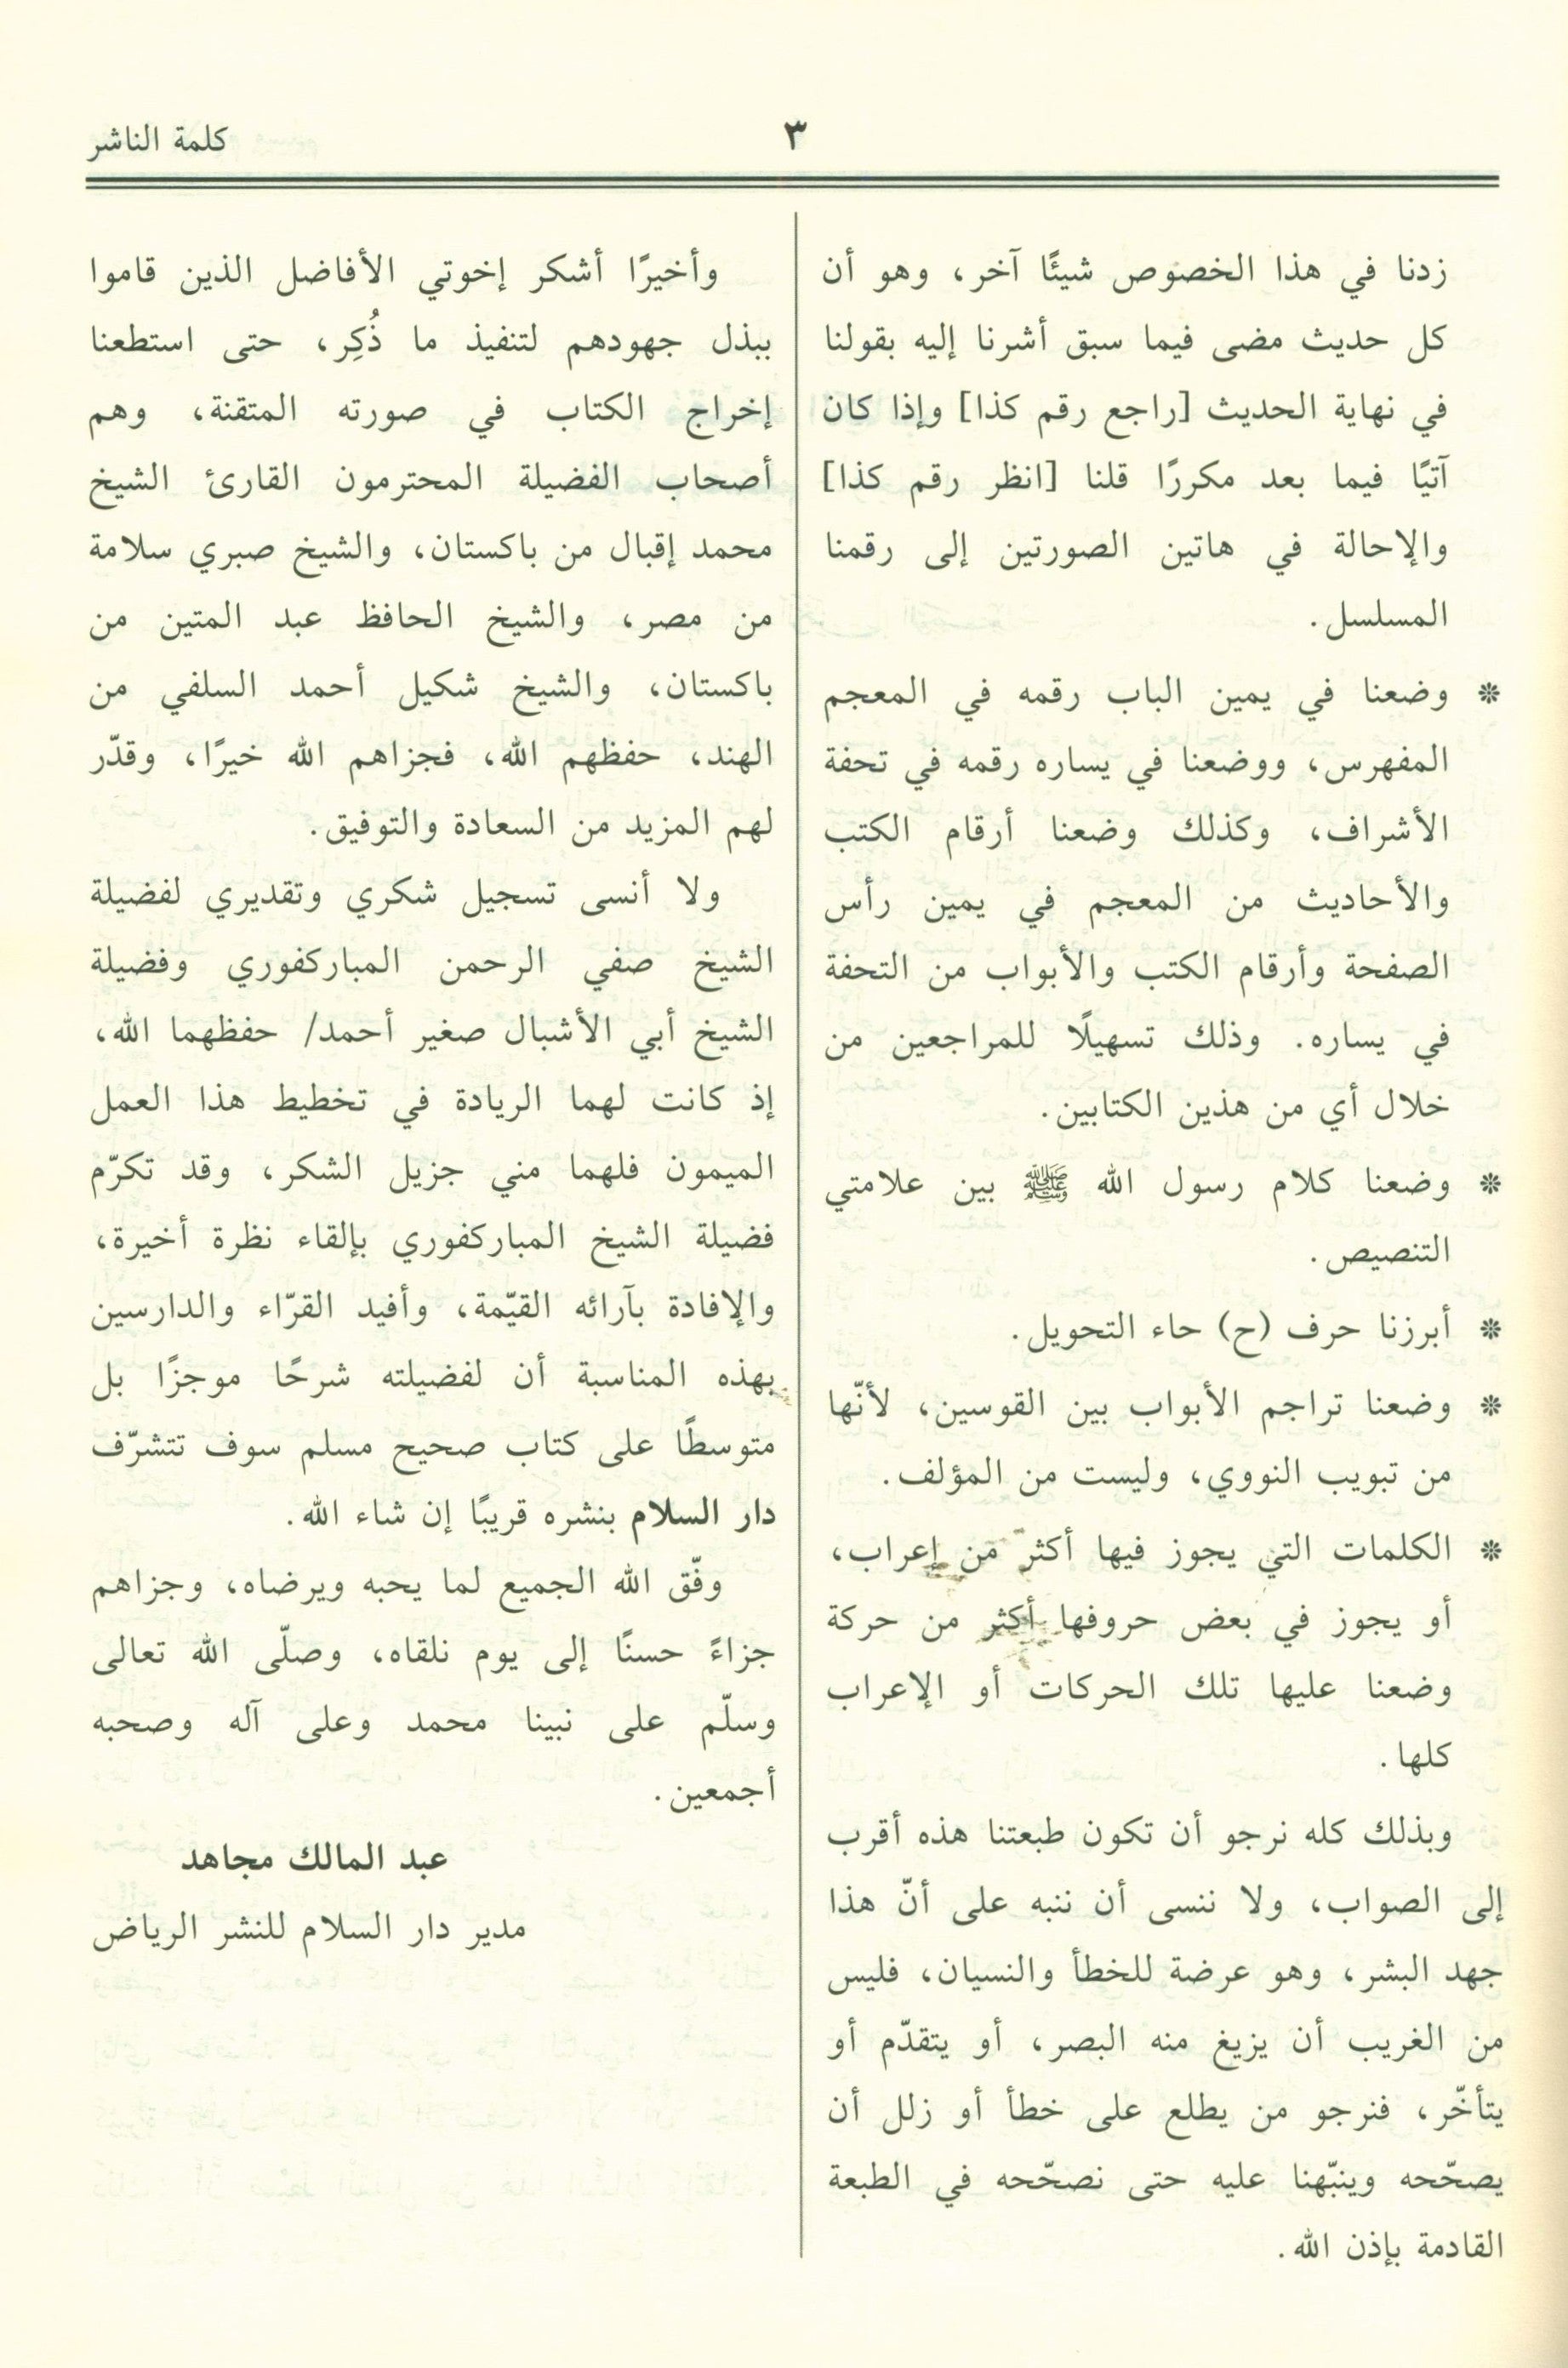 ٣
كلمة الناشر
زدنا في هذا الخصوص شيئًا آخر، وهو أن
كل حديث مضى فيما سبق أشرنا إليه بقولنا
في نهاية الحديث [راجع رقم كذا] وإذا كان
آتيًا فيما بعد مكررًا قلنا [انظر رقم كذا]
والإحالة في هاتين الصورتين إلى رقمنا
المسلسل.
* وضعنا في يمين الباب رقمه في المعجم
المفهرس، ووضعنا في يساره رقمه في تحفة
الأشراف، وكذلك وضعنا أرقام الكتب
والأحاديث من المعجم في يمين رأس
الصفحة وأرقام الكتب والأبواب من التحفة
في يساره. وذلك تسهيلًا للمراجعين من
خلال أي من هذين الكتابين.
* وضعنا كلام رسول الله ﷺ بين علامتي
التنصيص.
* أبرزنا حرف (ح) حاء التحويل.
* وضعنا تراجم الأبواب بين القوسين، لأنّها
من تبويب النووي، وليست من المؤلف.
* الكلمات التي يجوز فيها أكثر من إعراب،
أو يجوز في بعض حروفها أكثر من حركة
وضعنا عليها تلك الحركات أو الإعراب
كلها.
وبذلك كله نرجو أن تكون طبعتنا هذه أقرب
إلى الصواب، ولا ننسى أن ننبه على أنّ هذا
جهد البشر، وهو عرضة للخطأ والنسيان، فليس
من الغريب أن يزيغ منه البصر، أو يتقدّم أو
يتأخّر، فنرجو من يطلع على خطأ أو زلل أن
يصحّحه وينبّهنا عليه حتى نصحّحه في الطبعة
القادمة بإذن الله.
وأخيرًا أشكر إخوتي الأفاضل الذين قاموا
ببذل جهودهم لتنفيذ ما ذُكِر، حتى استطعنا
إخراج الكتاب في صورته المتقنة، وهم
أصحاب الفضيلة المحترمون القارئ الشيخ
محمد إقبال من باكستان، والشيخ صبري سلامة
من مصر، والشيخ الحافظ عبد المتين من
باكستان، والشيخ شكيل أحمد السلفي من
الهند، حفظهم الله، فجزاهم الله خيرًا، وقدّر
لهم المزيد من السعادة والتوفيق.
ولا أنسى تسجيل شكري وتقديري لفضيلة
الشيخ صفي الرحمن المباركفوري وفضيلة
الشيخ أبي الأشبال صغير أحمد/ حفظهما الله،
إذ كانت لهما الريادة في تخطيط هذا العمل
الميمون فلهما مني جزيل الشكر، وقد تكرّم
فضيلة الشيخ المباركفوري بإلقاء نظرة أخيرة،
والإفادة بآرائه القيّمة، وأفيد القرّاء والدارسين
بهذه المناسبة أن لفضيلته شرحًا موجزًا بل
متوسطًا على كتاب صحيح مسلم سوف تتشرّف
دار السلام بنشره قريبًا إن شاء الله.
وفّق الله الجميع لما يحبه ويرضاه، وجزاهم
جزاءً حسنًا إلى يوم نلقاه، وصلّى الله تعالى
وسلّم على نبينا محمد وعلى آله وصحبه
أجمعين.
عبد المالك مجاهد
مدير دار السلام للنشر الرياض